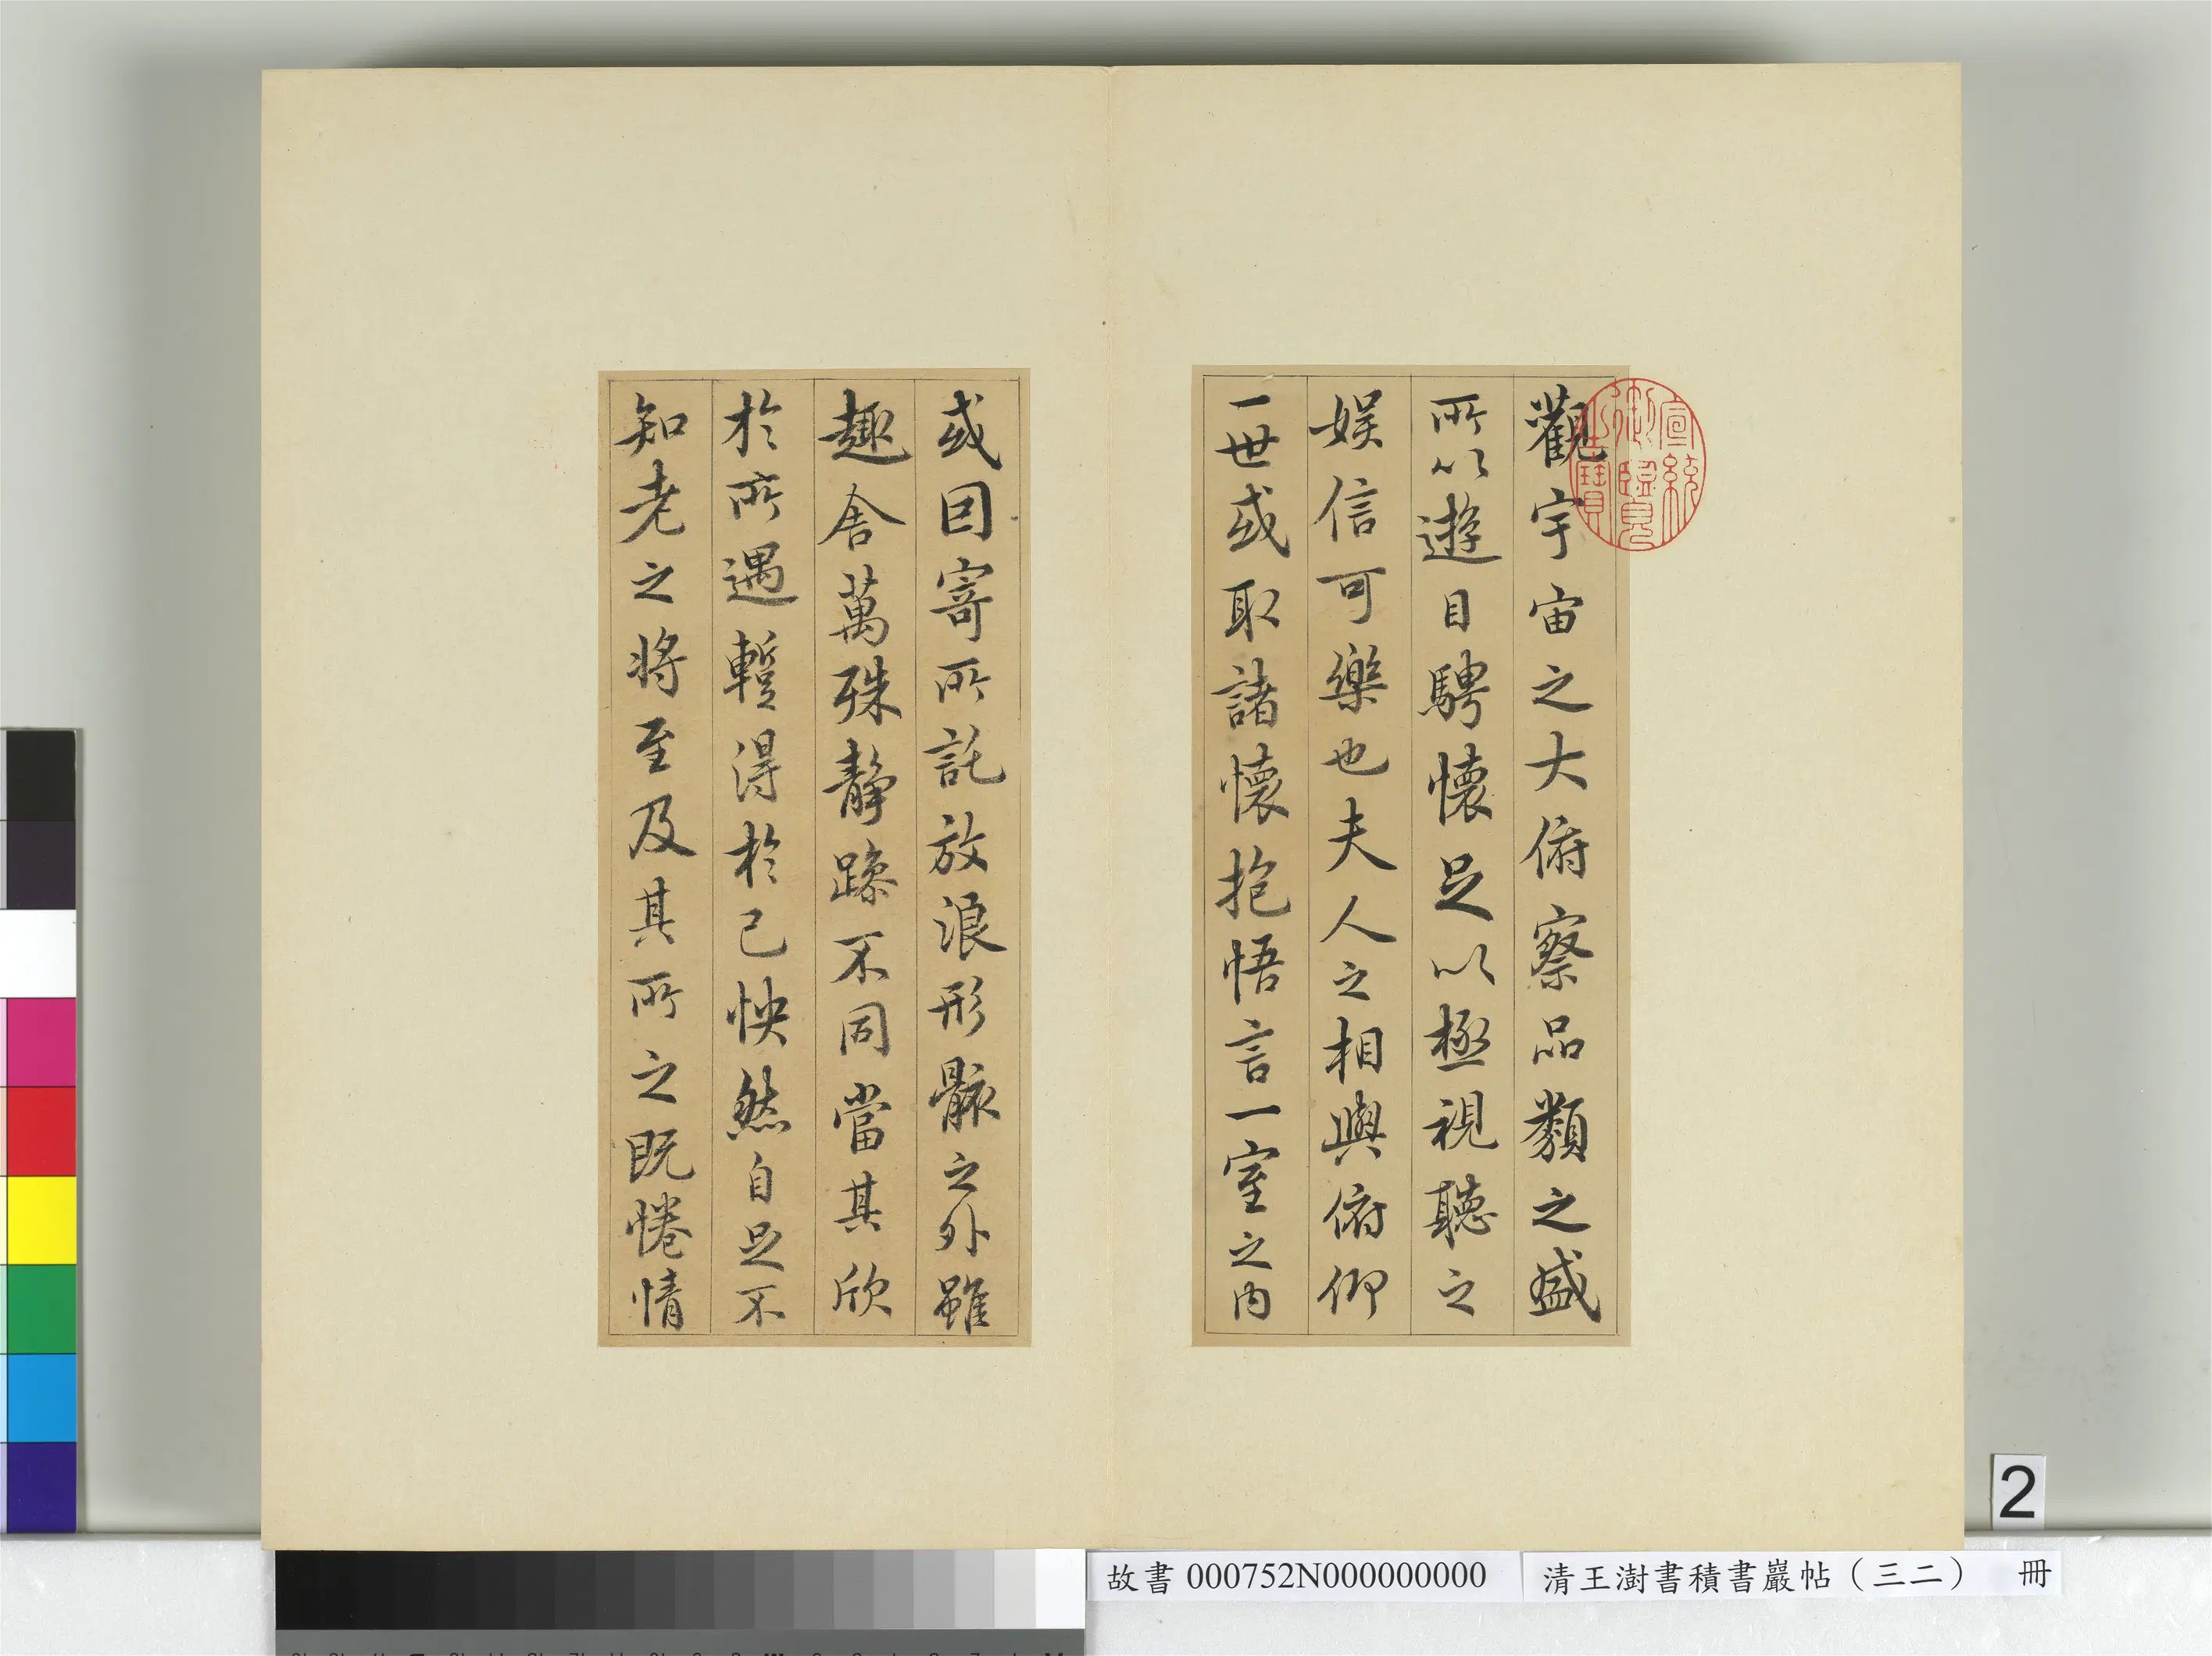 觀宇宙之大俯察品類之盛
所以遊目騁懷足以極視聽之
娱信可樂也夫人之相與俯仰
一世或取諸懷抱悟言一室之内
或因寄所託放浪形骸之外雖
趣舍萬殊静躁不同當其欣
於所遇蹔得於己怏然自足不
知老之將至及其所之既惓情
宣統
御覽
之寶
2
故書 000752N000000000
清王澍書積書巖帖（三二） 冊